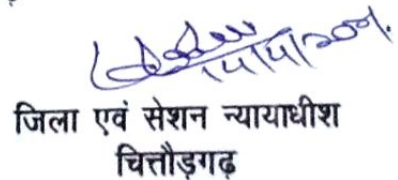 जिला एवं सेशन न्यायाधीश
चित्तौड़गढ़